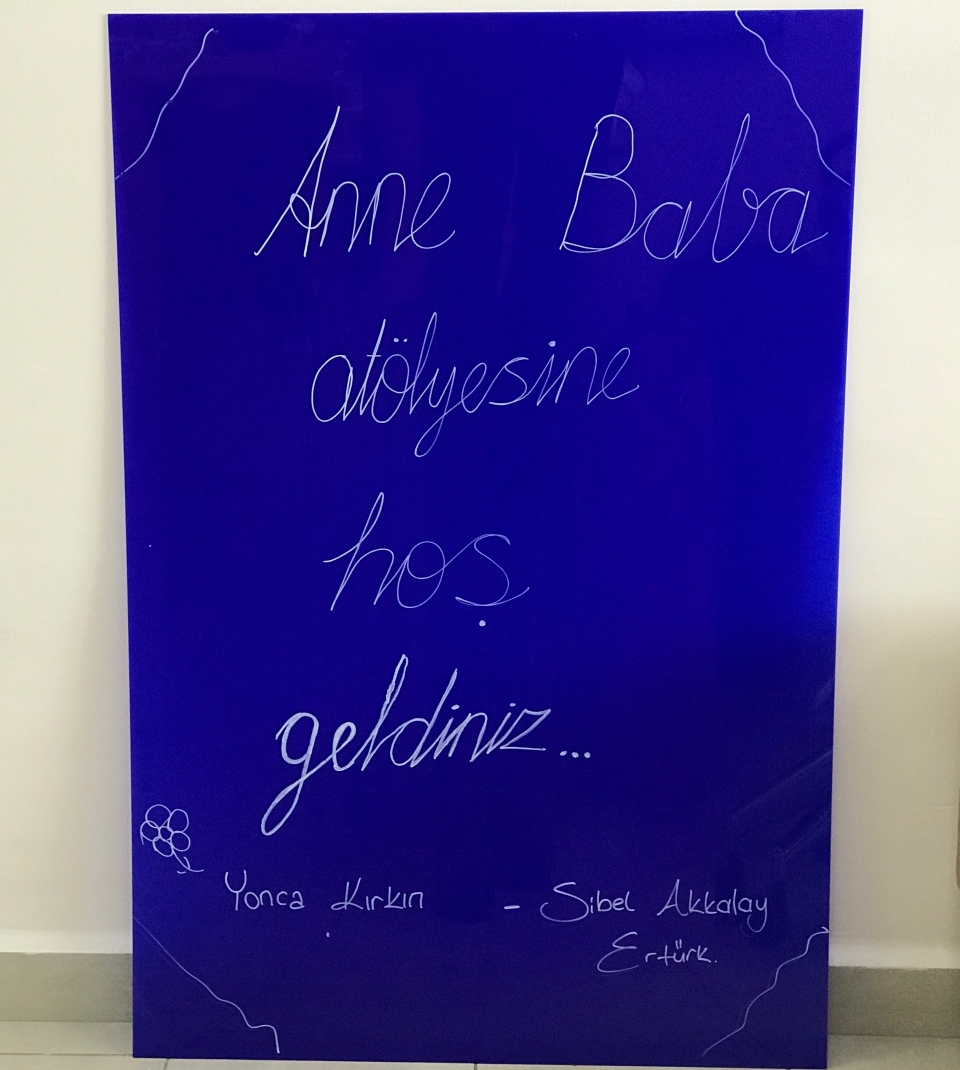 Anne Baba
atölyesine
hoş
geldiniz...
Yonca Kırkın - Sibel Akkalay
Ertürk.